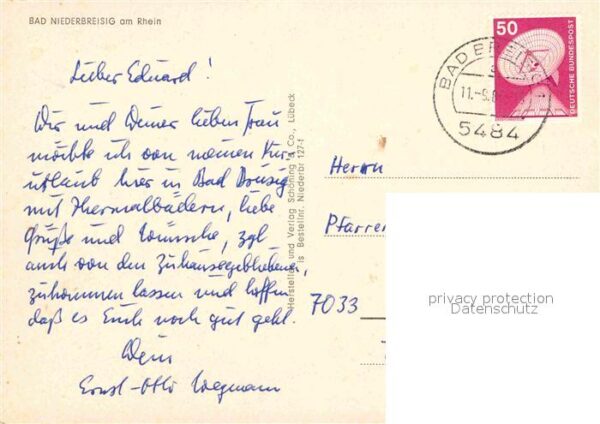 BAD NIEDERBREISIG am Rhein
Lieber Eduard!
Dir und Deiner lieben Frau
möchte ich von meinem Kur-
urlaub hier in Bad Breisig
mit Thermalbädern, liebe
Grüße und Wünsche, zgl.
auch von den Zuhausegebliebenen,
zukommen lassen und hoffe,
daß es Euch noch gut geht.
Dein
Ernst-Otto Wegmann
Hersteller und Verlag Schöning & Co., Lübeck
is Bestellnr. Niederbr 127-1
50
DEUTSCHE BUNDESPOST
BAD BREISIG
11.-6.8
5484
Herrn
Pfarrer
7033
privacy protection
Datenschutz